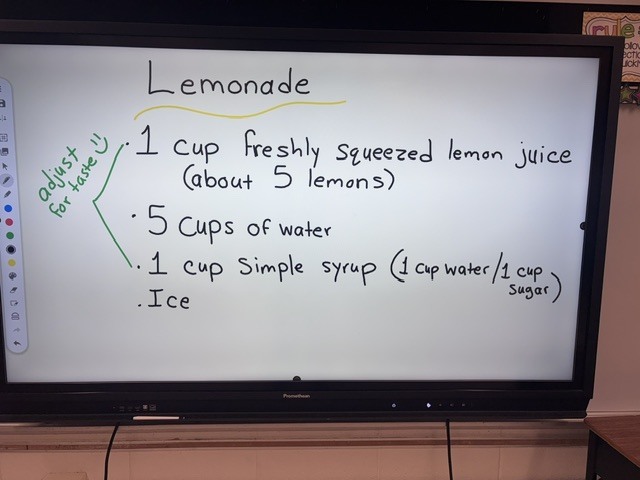 Lemonade
adjust
for taste
. 1 cup freshly squeezed lemon juice
(about 5 lemons)
. 5 cups of water
. 1 cup simple syrup (1 cup water/1 cup
sugar)
. Ice
Promethean